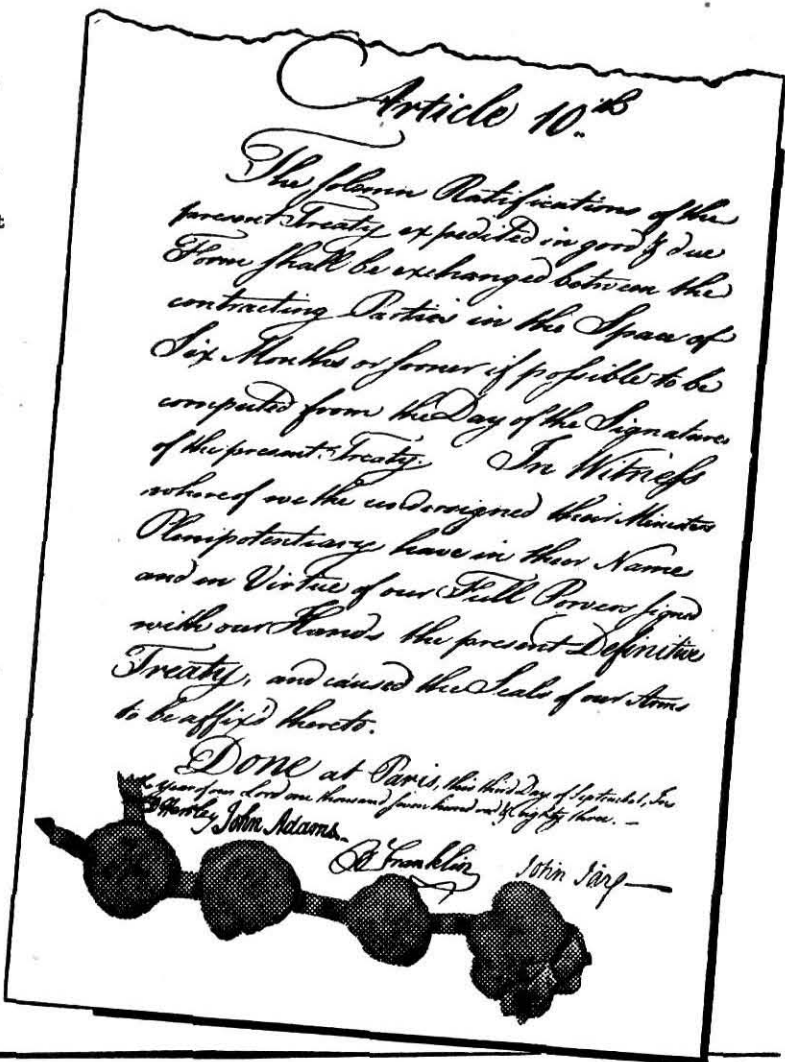 Article 10.th
The solemn Ratifications of the
present Treaty expedited in good & due
Form shall be exchanged between the
contracting Parties in the Space of
Six Months or sooner if possible to be
computed from the Day of the Signature
of the present Treaty. In Witness
whereof we the undersigned their Ministers
Plenipotentiary have in their Name
and in Virtue of our Full Powers signed
with our Hands the present Definitive
Treaty, and caused the Seals of our Arms
to be affix'd thereto.
Done at Paris, this third Day of September, In
the Year of our Lord one thousand seven hundred & eighty three. –
D Hartley John Adams.
B Franklin John Jay